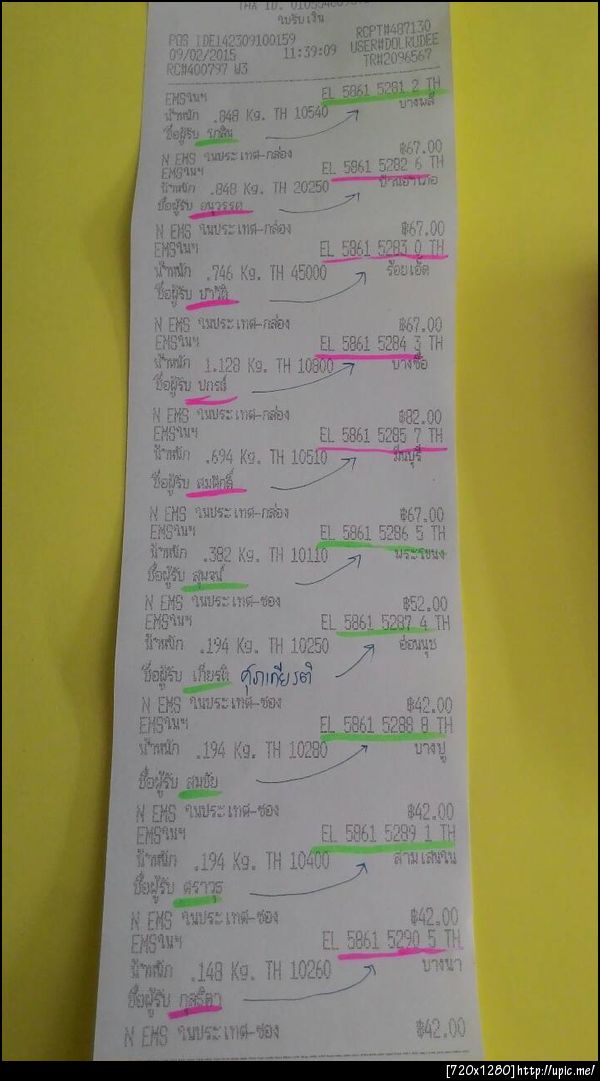 ใบรับเงิน
POS IDE142309100159 RCPT#487130
09/02/2015 11:39:09 USER#DOLRUDEE
RC#400797 W3 TR#2096567
EMSในฯ EL 5861 5281 2 TH
น้ำหนัก .848 Kg. TH 10540 บางพลี
ชื่อผู้รับ โกสิน
N EMS ในประเทศ-กล่อง ฿67.00
EMSในฯ EL 5861 5282 6 TH
น้ำหนัก .848 Kg. TH 20250
ชื่อผู้รับ อนุวรรต
N EMS ในประเทศ-กล่อง ฿67.00
EMSในฯ EL 5861 5283 0 TH
น้ำหนัก .746 Kg. TH 45000 ร้อยเอ็ด
ชื่อผู้รับ ปาวัติ
N EMS ในประเทศ-กล่อง ฿67.00
EMSในฯ EL 5861 5284 3 TH
น้ำหนัก 1.128 Kg. TH 10800 บางซื่อ
ชื่อผู้รับ ปกรณ์
N EMS ในประเทศ-กล่อง ฿82.00
EMSในฯ EL 5861 5285 7 TH
น้ำหนัก .694 Kg. TH 10510 มีนบุรี
ชื่อผู้รับ สมศักดิ์
N EMS ในประเทศ-กล่อง ฿67.00
EMSในฯ EL 5861 5286 5 TH
น้ำหนัก .382 Kg. TH 10110 พระโขนง
ชื่อผู้รับ สุพจน์
N EMS ในประเทศ-ซอง ฿52.00
EMSในฯ EL 5861 5287 4 TH
น้ำหนัก .194 Kg. TH 10250 อ่อนนุช
ชื่อผู้รับ เกียรติ ศุภเกียรติ
N EMS ในประเทศ-ซอง ฿42.00
EMSในฯ EL 5861 5288 8 TH
น้ำหนัก .194 Kg. TH 10280 บางปู
ชื่อผู้รับ สมชัย
N EMS ในประเทศ-ซอง ฿42.00
EMSในฯ EL 5861 5289 1 TH
น้ำหนัก .194 Kg. TH 10400 สามเสนใน
ชื่อผู้รับ ศราวุธ
N EMS ในประเทศ-ซอง ฿42.00
EMSในฯ EL 5861 5290 5 TH
น้ำหนัก .148 Kg. TH 10260 บางนา
ชื่อผู้รับ กุลธิดา
N EMS ในประเทศ-ซอง ฿42.00
[720x1280]http://upic.me/